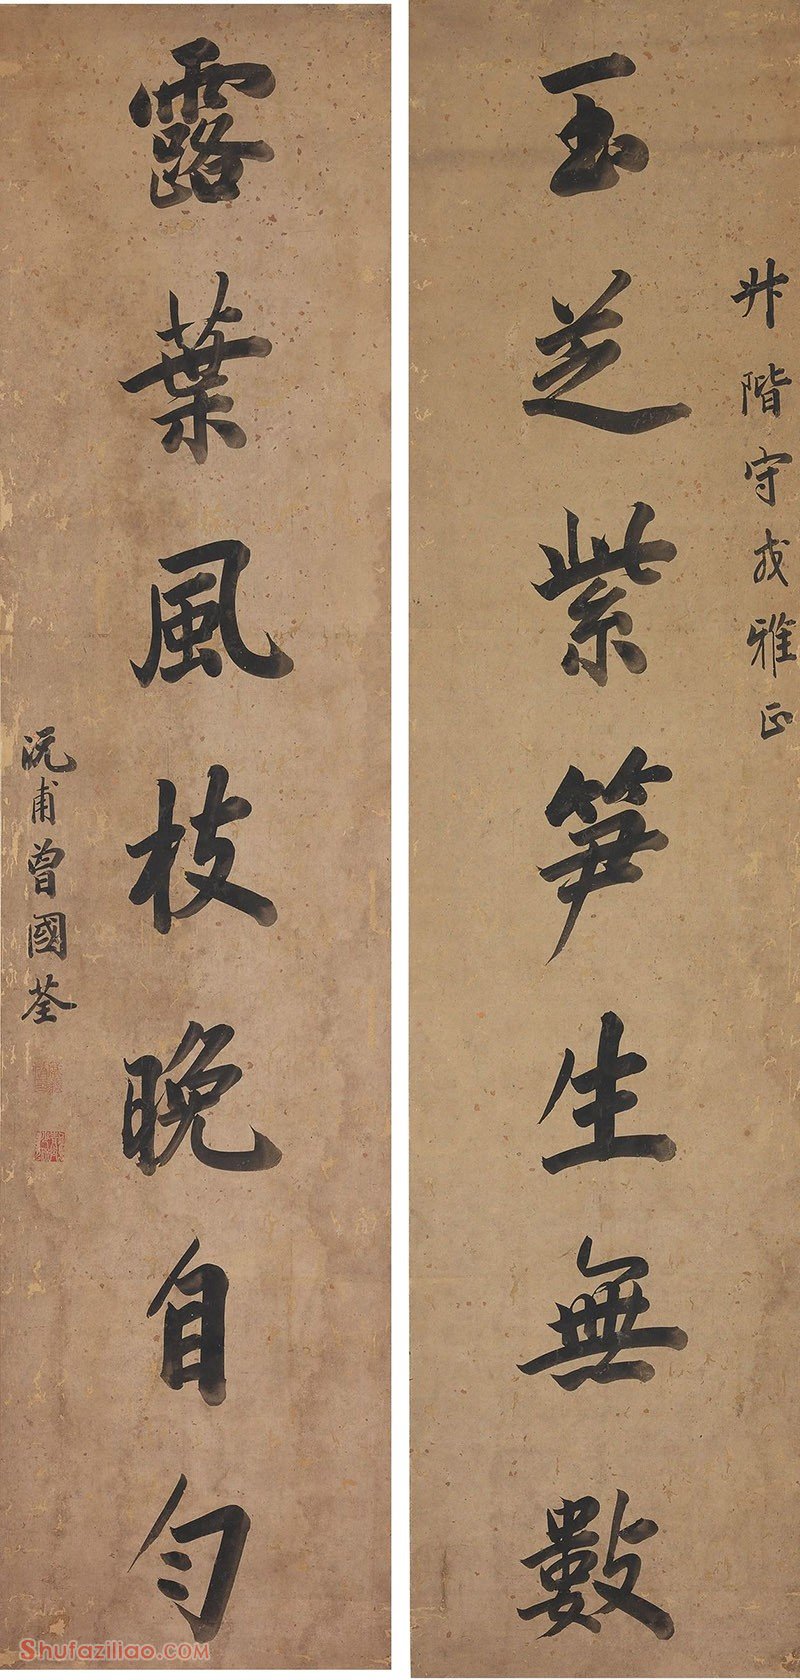 升階守戎雅正
玉芝紫笋生無數
露葉風枝晚自勻
沅甫曾國荃
Shufaziliao.COM